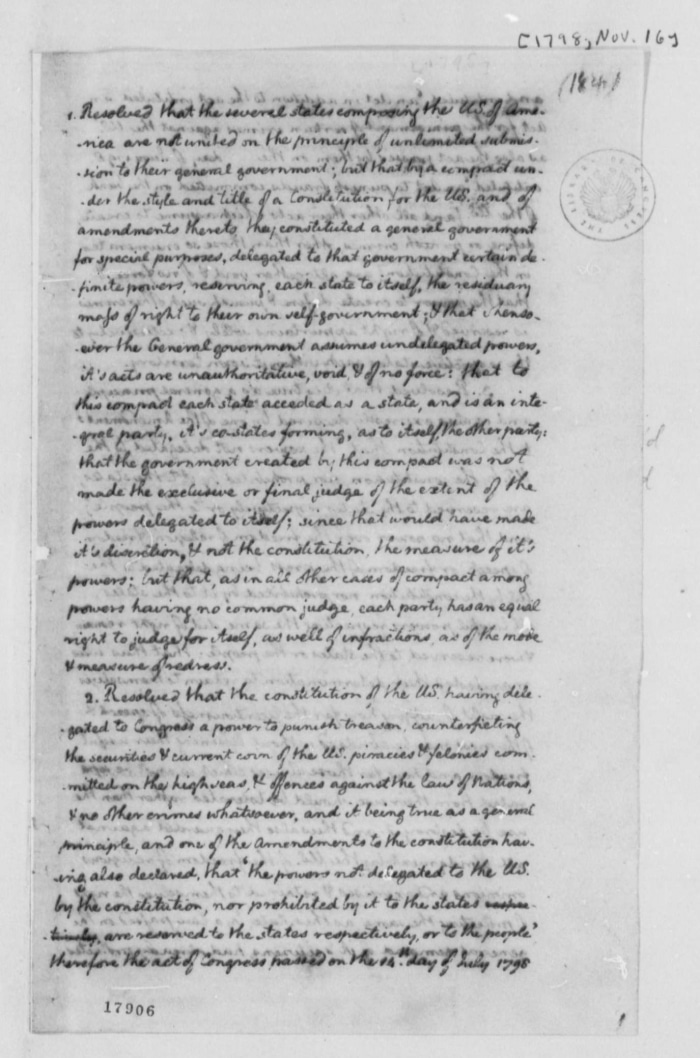 [1798, Nov. 16]
(184)
THE LIBRARY OF CONGRESS
1. Resolved that the several states composing the U.S. of Ame-
-rica are not united on the principle of unlimited submis-
-sion to their general government; but that by a compact un-
-der the style and title of a Constitution for the U.S. and of
amendments thereto, they constituted a general government
for special purposes, delegated to that government certain de-
-finite powers, reserving, each state to itself, the residuary
mass of right to their own self-government; & that whenso-
-ever the General government assumes undelegated powers,
it's acts are unauthoritative, void & of no force: that to
this compact each state acceded as a state, and is an inte-
-gral party, it's co-states forming, as to itself, the other party:
that the government created by this compact was not
made the exclusive or final judge of the extent of the
powers delegated to itself; since that would have made
it's discretion, & not the constitution, the measure of it's
powers: but that, as in all other cases of compact among
powers having no common judge, each party has an equal
right to judge for itself, as well of infractions, as of the mode
& measure of redress.
2. Resolved that the constitution of the U.S. having dele-
-gated to Congress a power to punish treason, counterfieting
the securities & current coin of the U.S. piracies & felonies com-
-mitted on the high seas, & offences against the law of Nations,
& no other crimes whatsoever, and it being true as a general
principle, and one of the Amendments to the constitution hav-
-ing also declared, that 'the powers not delegated to the U.S.
by the constitution, nor prohibited by it to the states respec-
-tively, are reserved to the states respectively, or to the people'
therefore the act of Congress passed on the 14th day of July 1798
17906